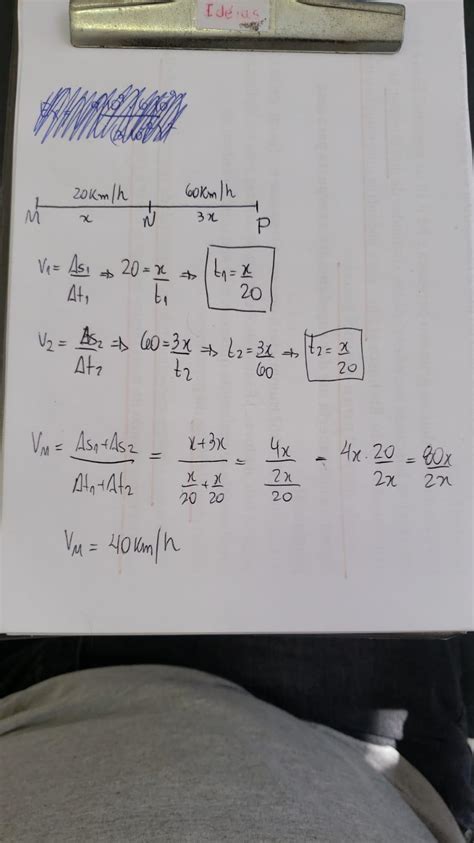 Idéias
20km/h 60km/h
M x N 3x P
V₁ = Δs₁/Δt₁ ⇒ 20 = x/t₁ ⇒ t₁ = x/20
V₂ = Δs₂/Δt₂ ⇒ 60 = 3x/t₂ ⇒ t₂ = 3x/60 ⇒ t₂ = x/20
Vм = Δs₁+Δs₂/Δt₁+Δt₂ = x+3x/x/20+x/20 = 4x/2x/20 = 4x·20/2x = 80x/2x
Vм = 40km/h